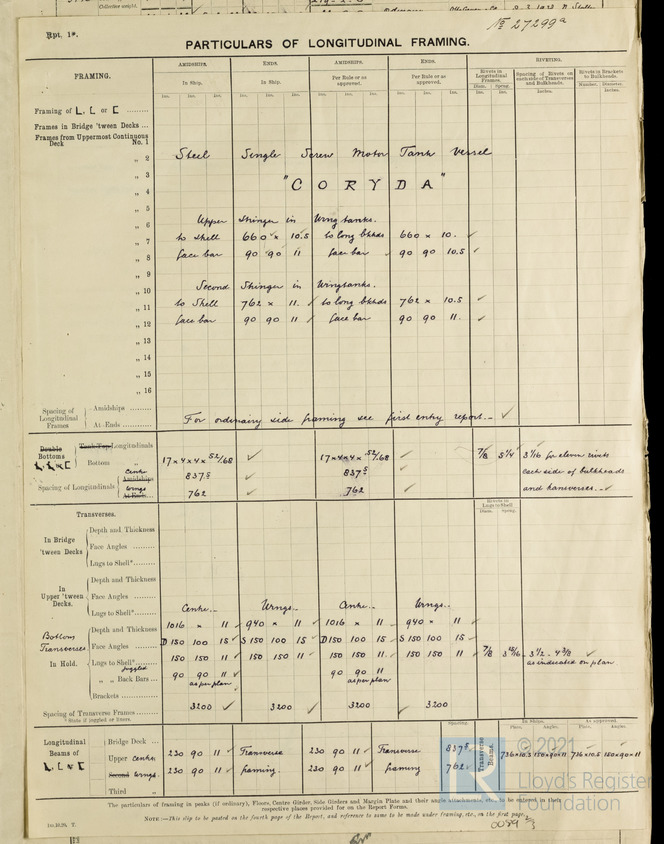 Collective weight.
No 27299a
Rpt. 1*.
PARTICULARS OF LONGITUDINAL FRAMING.
FRAMING.
AMIDSHIPS. ENDS. AMIDSHIPS. ENDS. RIVETING.
In Ship. In Ship. Per Rule or as approved. Per Rule or as approved.
Rivets in Longitudinal Frames. Spacing of Rivets on each side of Transverses and Bulkheads. Rivets in Brackets to Bulkheads.
Ins. Ins. Ins. Ins. Ins. Ins. Ins. Ins. Ins. Ins. Ins. Ins. Diam. Spcng. Inches. Number. Diameter.
Framing of L, L or C
Frames in Bridge 'tween Decks ...
Frames from Uppermost Continuous Deck No. 1
„ 2 Steel Single Screw Motor Tank Vessel
„ 3
„ 4 "CORYDA"
„ 5
„ 6 Upper Stringer in Wingtanks.
„ 7 to shell 660 × 10.5 to long bkhds 660 × 10. ✓
„ 8 face bar 90 90 11 face bar 90 90 10.5 ✓
„ 9
„ 10 Second Stringer in Wingtanks.
„ 11 to Shell 762 × 11. ✓ to long bkhds 762 × 10.5 ✓
„ 12 face bar 90 90 11 ✓ face bar 90 90 11. ✓
„ 13
„ 14
„ 15
„ 16
Spacing of Longitudinal Frames Amidships
At Ends For ordinary side framing see first entry report. ✓
Double Bottoms L, L or C Tank Top Longitudinals
Bottom „ 17×4×4×.52/.68 ✓ 17×4×4×.52/.68 ✓ 7/8 5 1/4 3 3/16 for eleven rivets
Spacing of Longitudinals Centre Amidships 837.5 ✓ 837.5 ✓ each side of bulkheads
Wings At Ends 762 ✓ 762 ✓ and transverses. ✓
Transverses.
Rivets in Lugs to Shell
Diam. Spcng.
In Bridge 'tween Decks Depth and Thickness
Face Angles
Lugs to Shell*
In Upper 'tween Decks. Depth and Thickness
Face Angles
Lugs to Shell* Centre Wings Centre Wings
Bottom Transverses In Hold. Depth and Thickness 1016 × 11 940 × 11 ✓ 1016 × 11 940 × 11 ✓
Face Angles D 150 100 15 ✓ S 150 100 15 ✓ D 150 100 15 ✓ S 150 100 15
Lugs to Shell* 150 150 11 ✓ 150 150 11 ✓ 150 150 11 ✓ 150 150 11 7/8 3 1/2 - 4 3/8 ✓
joggled as indicated on plan
„ „ Back Bars 90 90 11 ✓ 90 90 11
as per plan as per plan
Brackets
Spacing of Transverse Frames 3200 ✓ 3200 ✓ 3200 ✓ 3200
* State if joggled or liners.
Longitudinal Beams of L, L or C
Spacing In Ships. As approved.
Transverse Beams. Plate. Angles. Plate. Angles.
Bridge Deck
Upper „ Centre 230 90 11 ✓ Transverse 230 90 11 ✓ Transverse 837.5 736×10.5 150×90×11 736×10.5 150×90×11
Second Wings 230 90 11 ✓ framing. 230 90 11 ✓ framing 762
Third „
© 2021
Lloyd's Register Foundation
The particulars of framing in peaks (if ordinary), Floors, Centre Girder, Side Girders and Margin Plate and their angle attachments, etc., to be entered in their respective places provided for on the Report Forms.
NOTE:—This slip to be pasted on the fourth page of the Report, and reference to same to be made under framing, etc., on the first page.
0089 2/3